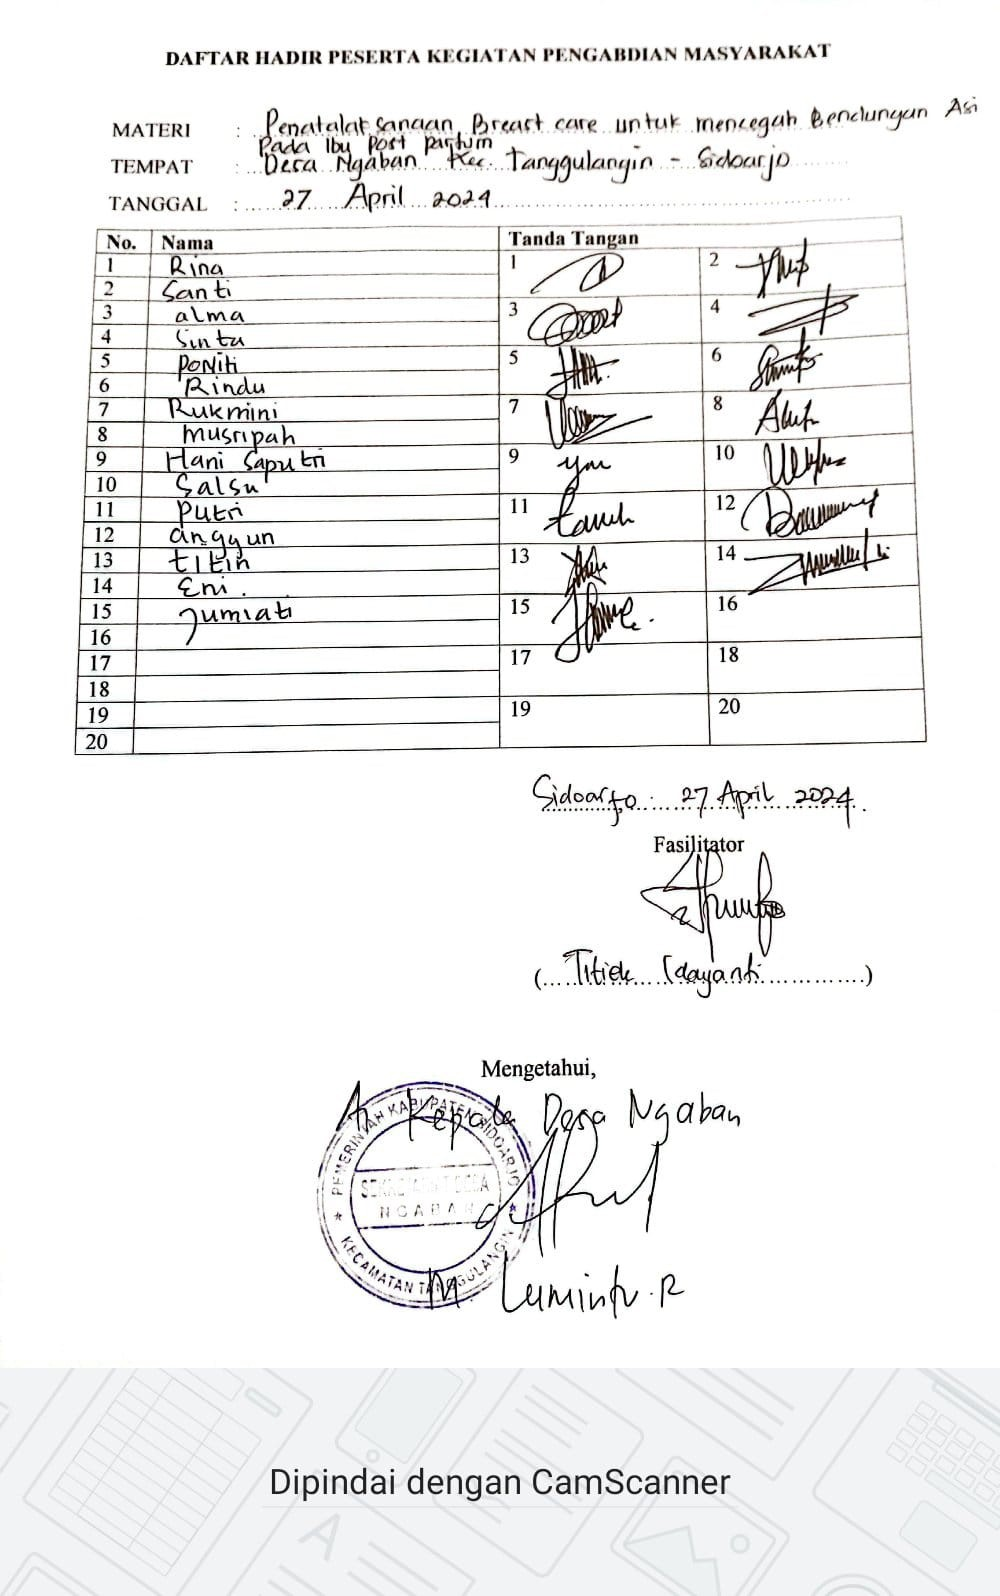 DAFTAR HADIR PESERTA KEGIATAN PENGABDIAN MASYARAKAT
MATERI : Penatalaksanaan Breast care untuk mencegah Bendungan Asi
Pada Ibu Post partum
TEMPAT : Desa Ngaban Kec. Tanggulangin - Sidoarjo
TANGGAL : 27 April 2024
No. Nama Tanda Tangan
1 Rina
2 Santi
3 alma
4 Sinta
5 PONiti
6 Rindu
7 Rukmini
8 Musripah
9 Hani Saputri
10 Salsa
11 Putri
12 anggun
13 titin
14 Eni.
15 Jumiati
16
17
18
19
20
1 2
3 4
5 6
7 8
9 10
11 12
13 14
15 16
17 18
19 20
Sidoarjo 27 April 2024
Fasilitator
(Titiek Idayanti)
Mengetahui,
Kepala Desa Ngaban
PEMERINTAH KABUPATEN SIDOARJO
SEKRETARIAT DESA
NGABAN
KECAMATAN TANGGULANGIN
M. Lumintu.R
Dipindai dengan CamScanner